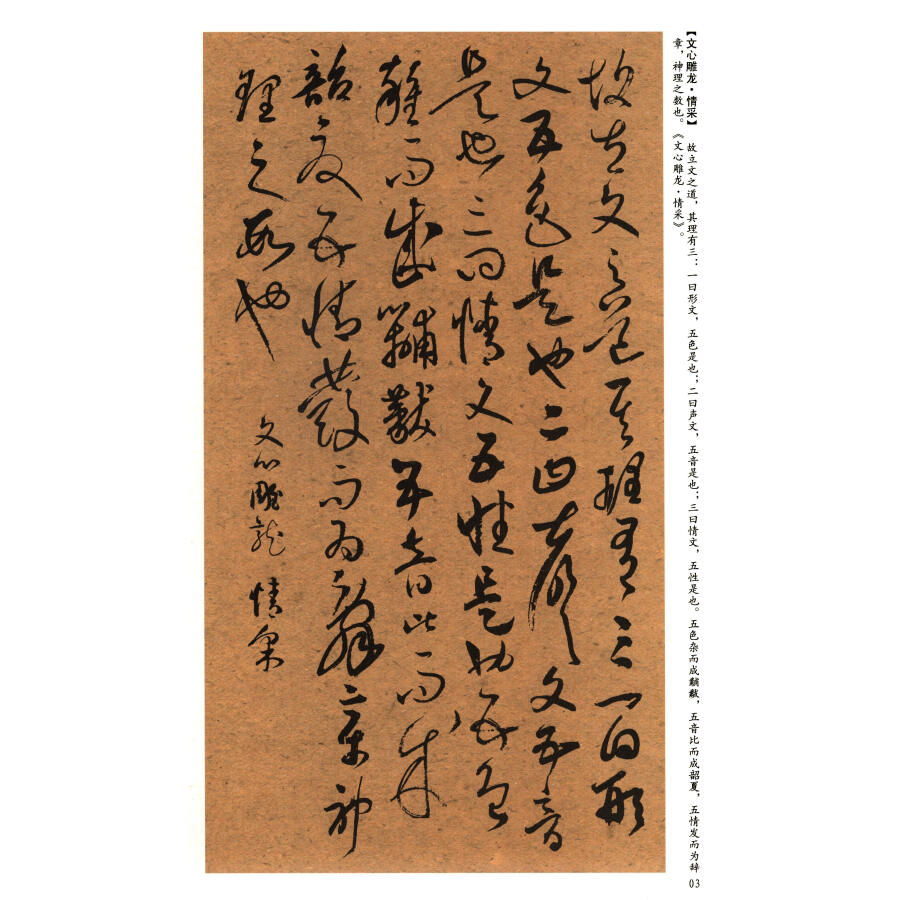 【文心雕龙·情采】 故立文之道，其理有三：一曰形文，五色是也；二曰声文，五音是也；三曰情文，五性是也。五色杂而成黼黻，五音比而成韶夏，五情发而为辞
章，神理之数也。《文心雕龙·情采》。
03
故立文之道其理有三一曰形
文五色是也二曰聲文五音
是也三曰情文五性是也五色
雜而成黼黻五音比而成
韶夏五情發而為辭章神
理之數也
文心雕龍 情采